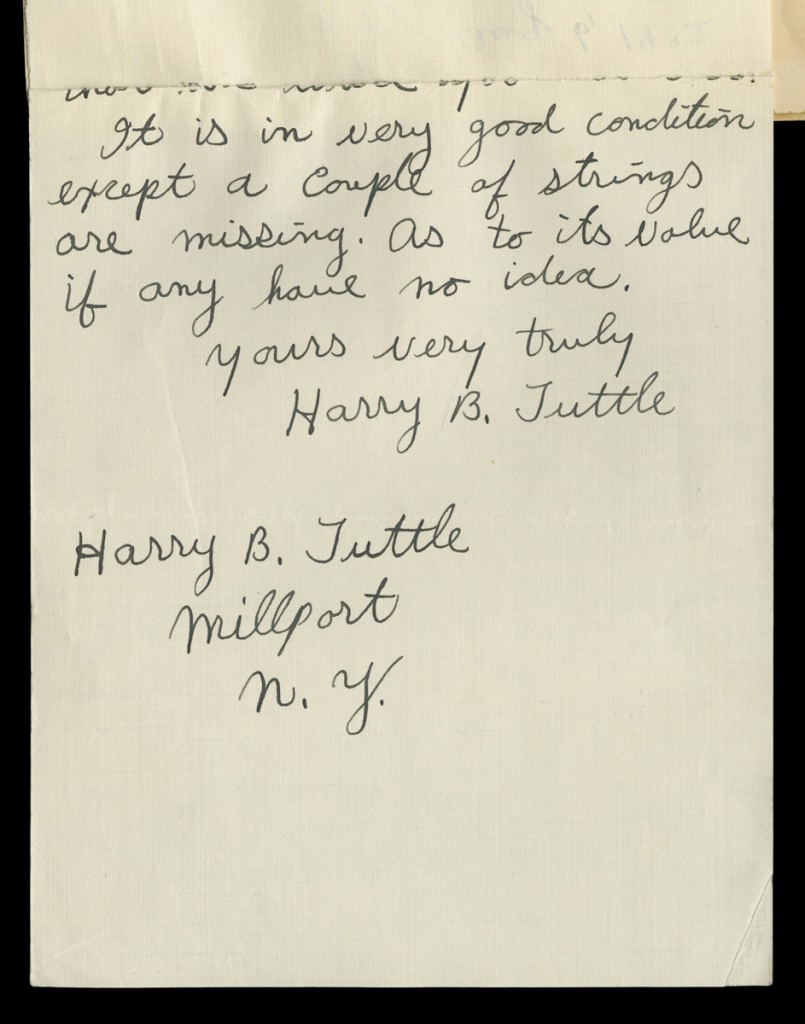 It is in very good condition
except a couple of strings
are missing. As to its value
if any have no idea.
Yours very truly
Harry B. Tuttle
Harry B. Tuttle
Millport
N. Y.